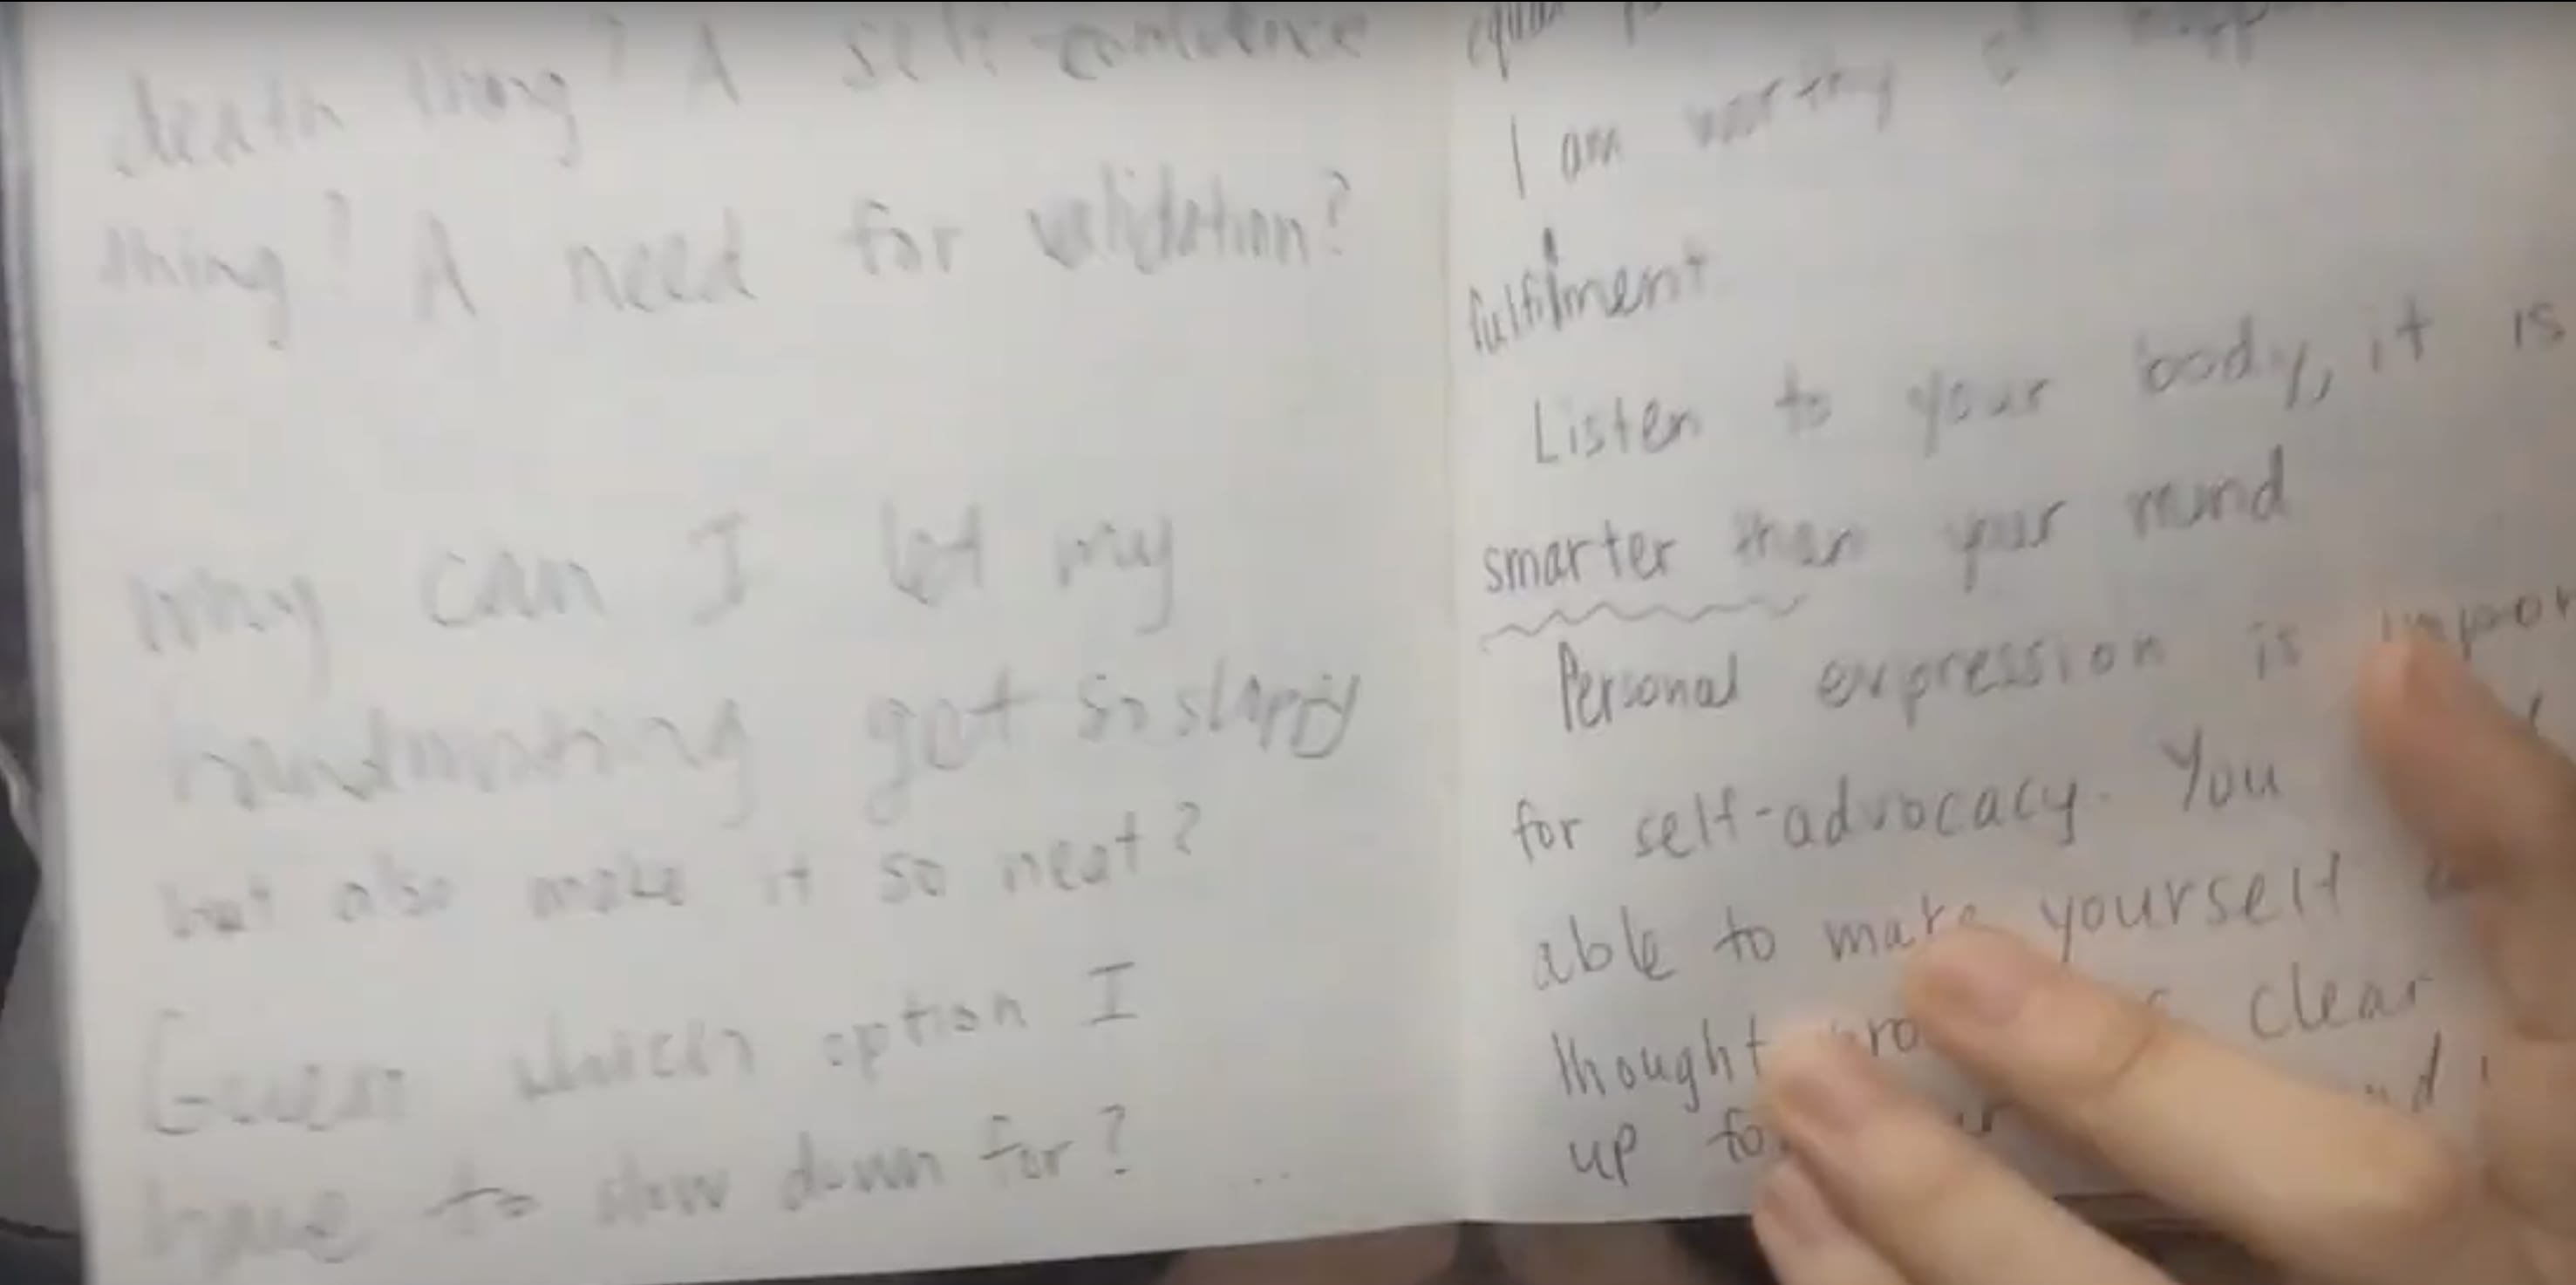 death thing? A self-confidence
thing? A need for validation?
Why can I let my
handwriting get so sloppy
but also make it so neat?
Guess which option I
have to slow down for? ...
equal
I am worthy of
fulfilment
Listen to your body, it is
smarter than your mind
Personal expression is
for self-advocacy. You
able to make yourself
thought clear
up